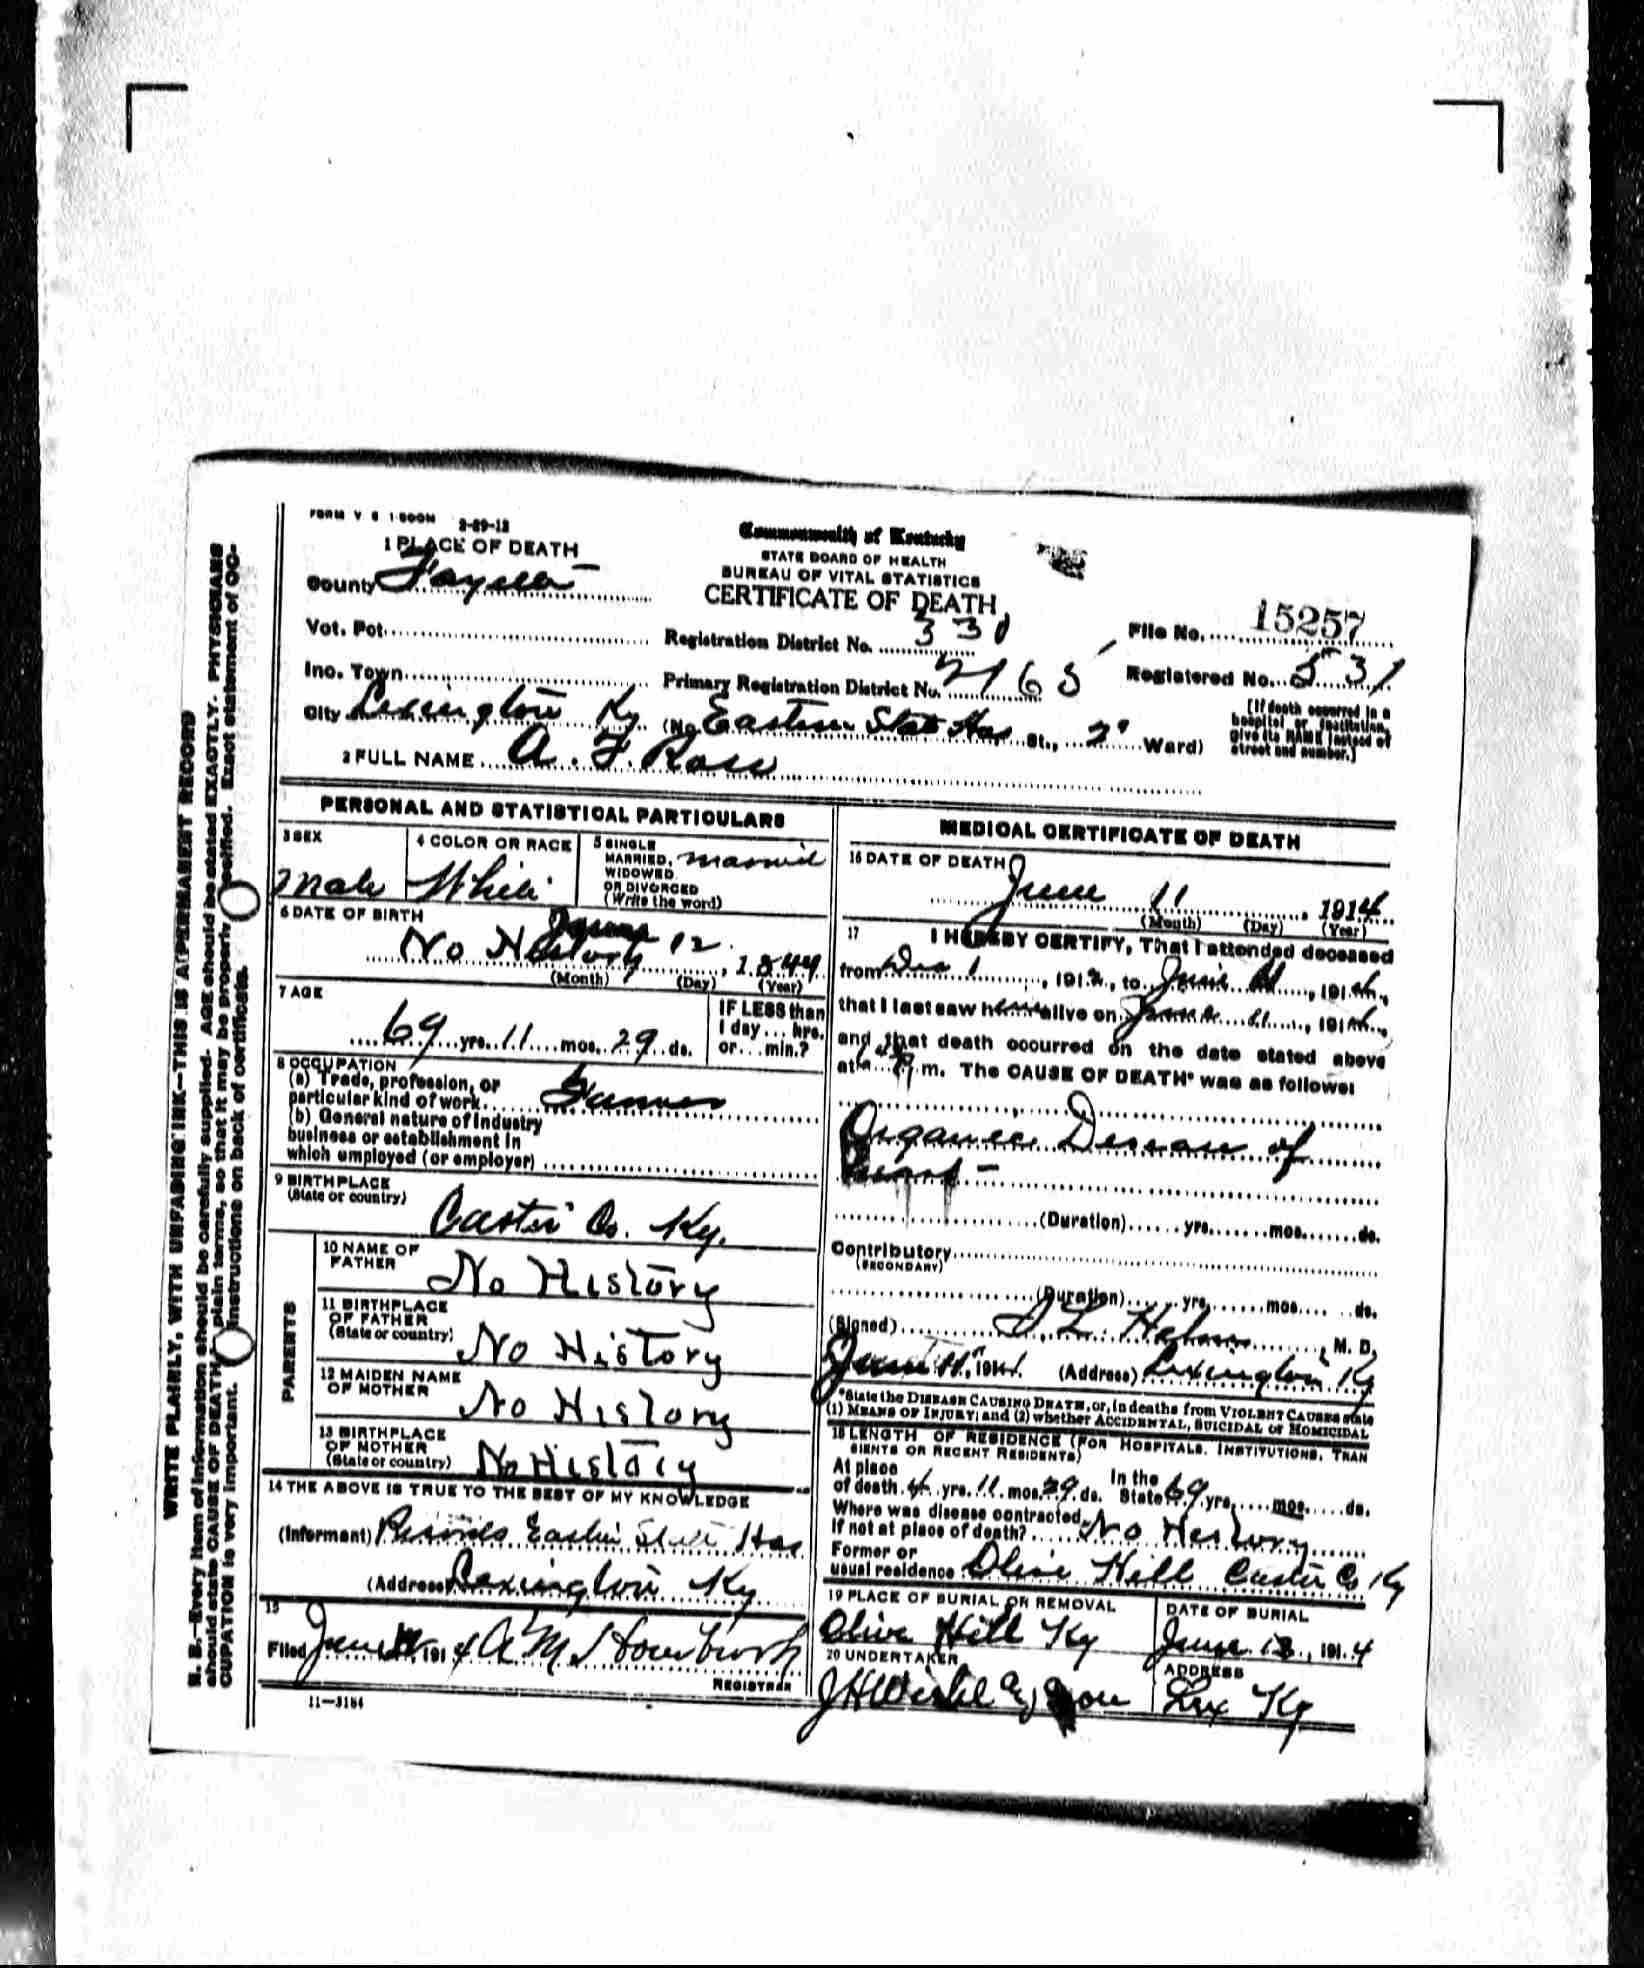 FORM V S 1-500M 2-29-12
1 PLACE OF DEATH
County Fayette
Vot. Pct.
Inc. Town
City Lexington Ky. (No. Eastern State Hos St., 2" Ward)
Commonwealth of Kentucky
STATE BOARD OF HEALTH
BUREAU OF VITAL STATISTICS
CERTIFICATE OF DEATH
Registration District No. 330
Primary Registration District No. 2165
File No. 15257
Registered No. 531
[If death occurred in a
hospital or institution,
give its NAME instead of
street and number.]
2 FULL NAME A. F. Ross
PERSONAL AND STATISTICAL PARTICULARS
3 SEX
Male
4 COLOR OR RACE
White
5 SINGLE
MARRIED,
WIDOWED
OR DIVORCED
(Write the word)
married
6 DATE OF BIRTH
No History 12, 1844
(Month) (Day) (Year)
7 AGE
69 yrs. 11 mos. 29 ds.
IF LESS than
1 day ... hrs.
or ... min.?
8 OCCUPATION
(a) Trade, profession, or
particular kind of work Farmer
(b) General nature of industry
business or establishment in
which employed (or employer)
9 BIRTHPLACE
(State or country)
Carter Co. Ky.
PARENTS
10 NAME OF
FATHER
No History
11 BIRTHPLACE
OF FATHER
(State or country)
No History
12 MAIDEN NAME
OF MOTHER
No History
13 BIRTHPLACE
OF MOTHER
(State or country)
No History
14 THE ABOVE IS TRUE TO THE BEST OF MY KNOWLEDGE
(Informant) Records Eastern State Hos
(Address) Lexington Ky
15
Filed June 1914
REGISTRAR
11-3184
MEDICAL CERTIFICATE OF DEATH
16 DATE OF DEATH
June 11, 1914
(Month) (Day) (Year)
17 I HEREBY CERTIFY, That I attended deceased
from Dec 1, 1912, to June 11, 1914,
that I last saw him alive on June 11, 1914,
and that death occurred on the date stated above
at m. The CAUSE OF DEATH* was as follows:
Organic Disease of
Heart -
(Duration) yrs. mos. ds.
Contributory
(SECONDARY)
(Duration) yrs. mos. ds.
(Signed) M. D.
June 11, 1914 (Address) Lexington Ky
*State the DISEASE CAUSING DEATH, or, in deaths from VIOLENT CAUSES state
(1) MEANS OF INJURY; and (2) whether ACCIDENTAL, SUICIDAL or HOMICIDAL
18 LENGTH OF RESIDENCE (FOR HOSPITALS, INSTITUTIONS, TRAN
SIENTS OR RECENT RESIDENTS)
At place
of death 4 yrs. 11 mos. 29 ds. In the
State 69 yrs. mos. ds.
Where was disease contracted,
If not at place of death? No History
Former or
usual residence Olive Hill Carter Co Ky
19 PLACE OF BURIAL OR REMOVAL
Olive Hill Ky
DATE OF BURIAL
June 13, 1914
20 UNDERTAKER
ADDRESS
Lex Ky
WRITE PLAINLY, WITH UNFADING INK—THIS IS A PERMANENT RECORD
N. B.—Every item of information should be carefully supplied. AGE should be stated EXACTLY. PHYSICIANS
should state CAUSE OF DEATH in plain terms, so that it may be properly classified. Exact statement of OC-
CUPATION is very important. See instructions on back of certificate.